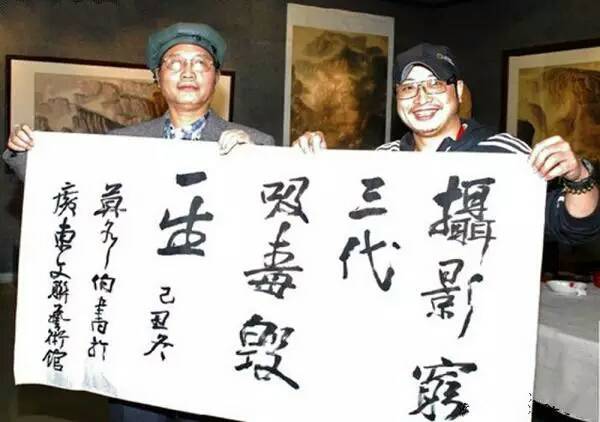 攝影窮
三代
吸毒毀
一生 己丑冬
莫各伯書於
廣東文聯藝術館